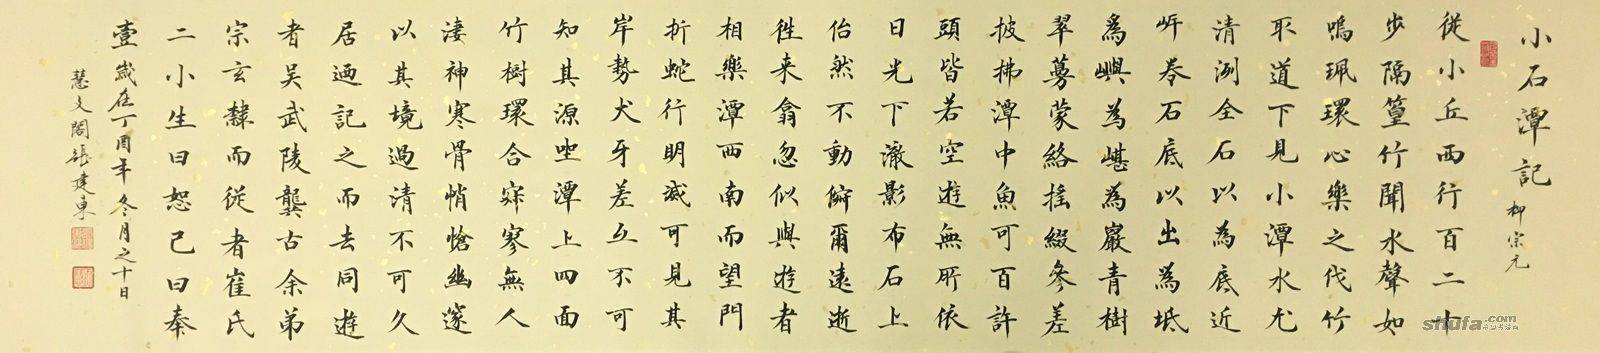 小石潭記 柳宗元
従小丘西行百二十
步隔篁竹聞水聲如
鳴珮環心樂之伐竹
取道下見小潭水尤
清洌全石以為底近
岸卷石底以出為坻
為嶼為嵁為巖青樹
翠蔓蒙絡搖綴參差
披拂潭中魚可百許
頭皆若空遊無所依
日光下澈影布石上
佁然不動俶爾遠逝
往来翕忽似與遊者
相樂潭西南而望門
折蛇行明滅可見其
岸勢犬牙差互不可
知其源坐潭上四面
竹樹環合寂寥無人
淒神寒骨悄愴幽邃
以其境過清不可久
居迺記之而去同遊
者吳武陵龔古余弟
宗玄隸而従者崔氏
二小生曰恕己曰奉
壹 歲在丁酉年冬月之十日
慧文閣張建東
shufa.com